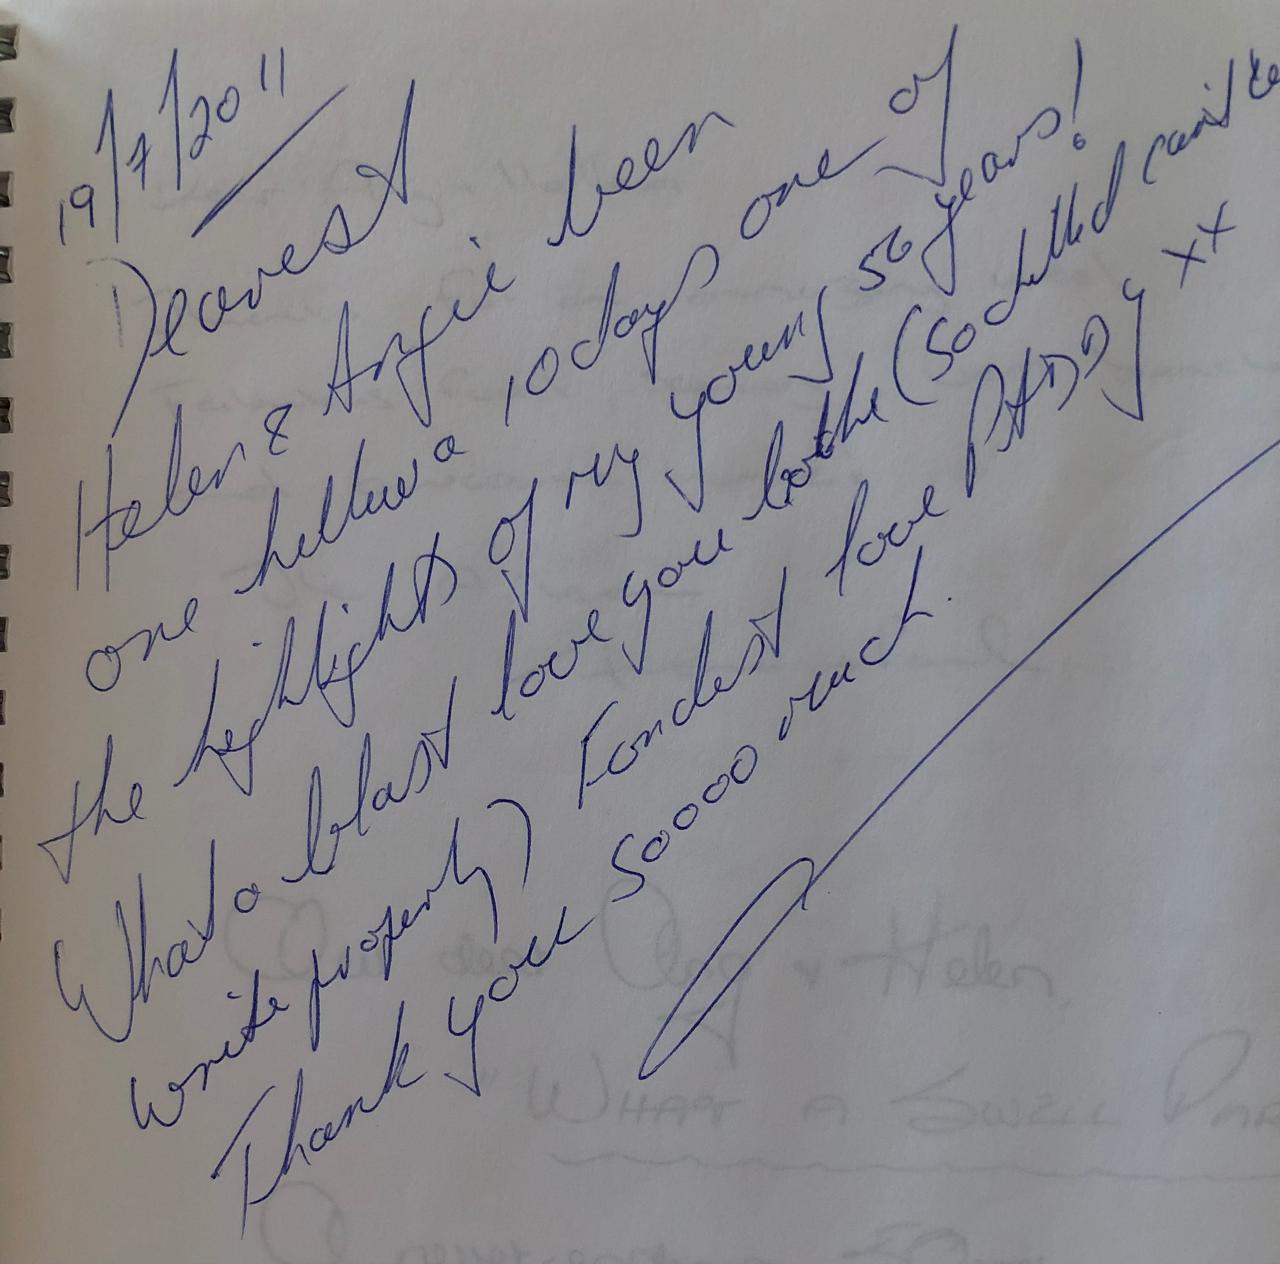 19/7/2011
Dearest
Helen & Angie been
one helluva 10 days one of
the highlights of my young 56 years!
What a blast love you bothe (so chilled can't
write property) Fondest love PADDY xx
Thank you soooo much.